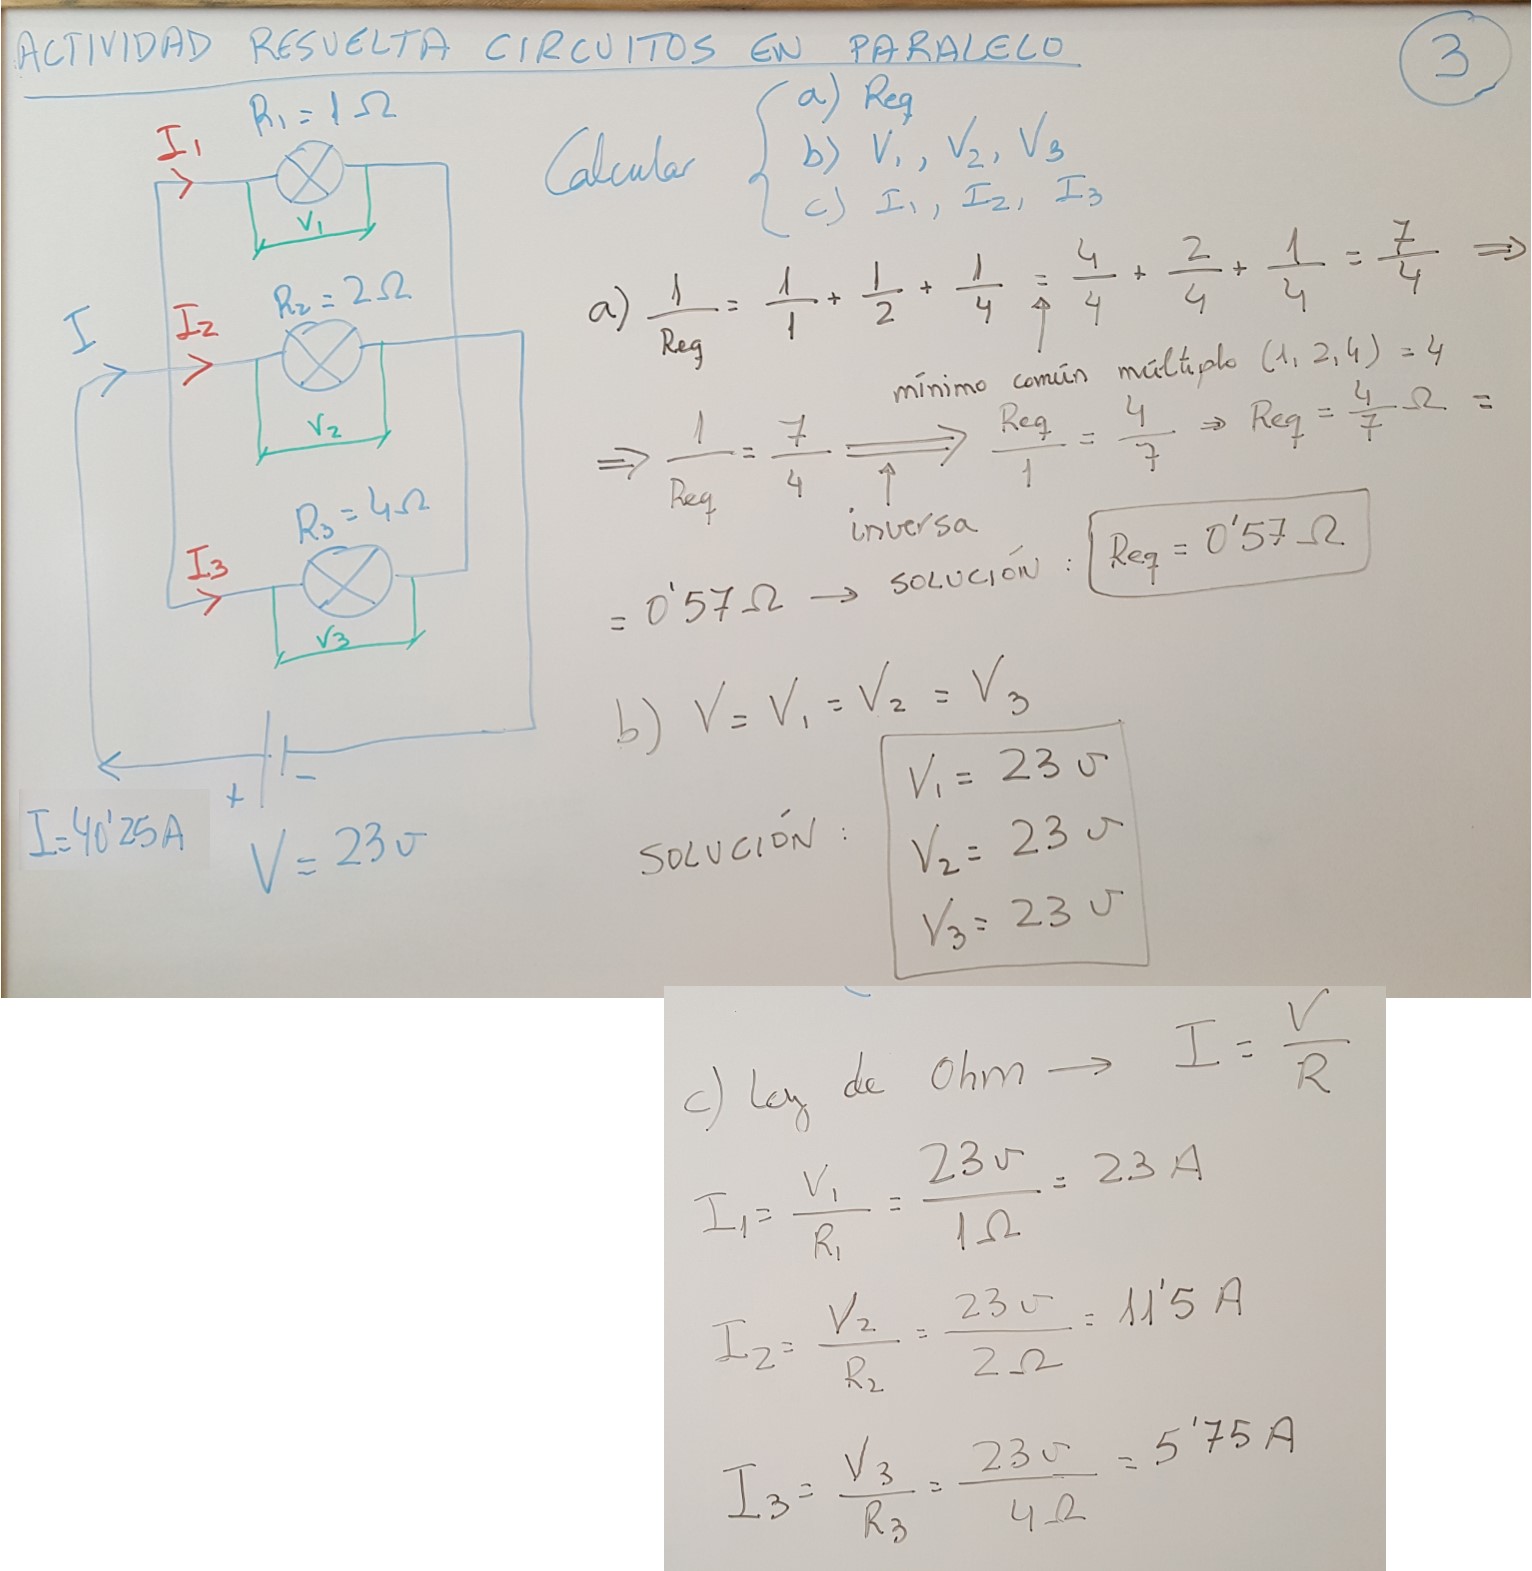 ACTIVIDAD RESUELTA CIRCUITOS EN PARALELO
3
R1 = 1Ω
I1
V1
R2 = 2Ω
I
I2
V2
R3 = 4Ω
I3
V3
+ -
I=40'25A
V = 23v
Calcular { a) Req
b) V1, V2, V3
c) I1, I2, I3
a) 1/Req = 1/1 + 1/2 + 1/4 = 4/4 + 2/4 + 1/4 = 7/4 ⇒
mínimo común múltiplo (1, 2, 4) = 4
⇒ 1/Req = 7/4 ⇒ Req/1 = 4/7 ⇒ Req = 4/7 Ω =
inversa
= 0'57Ω → SOLUCIÓN : Req = 0'57Ω
b) V = V1 = V2 = V3
SOLUCIÓN :
V1 = 23 v
V2 = 23 v
V3 = 23 v
c) Ley de Ohm → I = V/R
I1 = V1/R1 = 23v/1Ω = 23 A
I2 = V2/R2 = 23v/2Ω = 11'5 A
I3 = V3/R3 = 23v/4Ω = 5'75 A